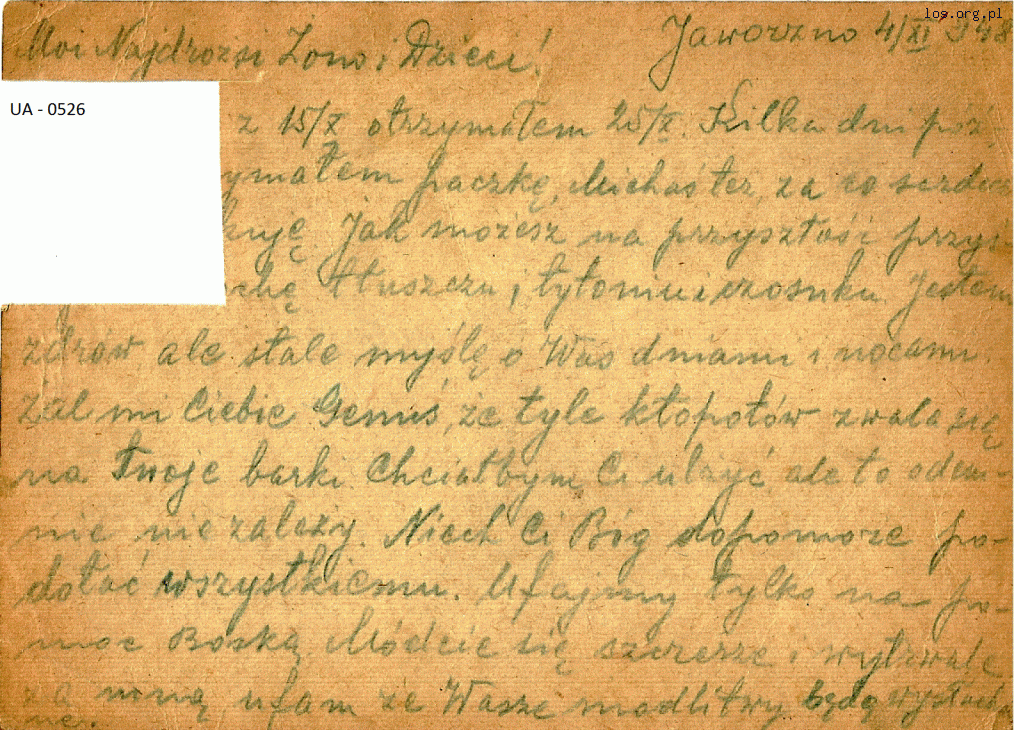 los.org.pl
Jaworzno 4/XI 1948
Moi Najdrożsi Żono i Dzieci!
UA - 0526
z 15/X otrzymałem 25/X. Kilka dni póź-
ymałem paczkę, Michaś też, za co serdecz
kuję. Jak możesz na przyszłość przyś-
tłuszczu, tytoniu i czosnku. Jestem
zdrów ale stale myślę o Was dniami i nocami.
Żal mi Ciebie Genuś, że tyle kłopotów zwala się
na Twoje barki. Chciałbym Ci ulżyć ale to odem-
nie nie zależy. Niech Ci Bóg dopomoże po-
dołać wszystkiemu. Ufajmy tylko na po-
moc Boską. Módlcie się szczerze i wytrwale
za mną ufam że Wasze modlitwy będą wysłucha
ne.